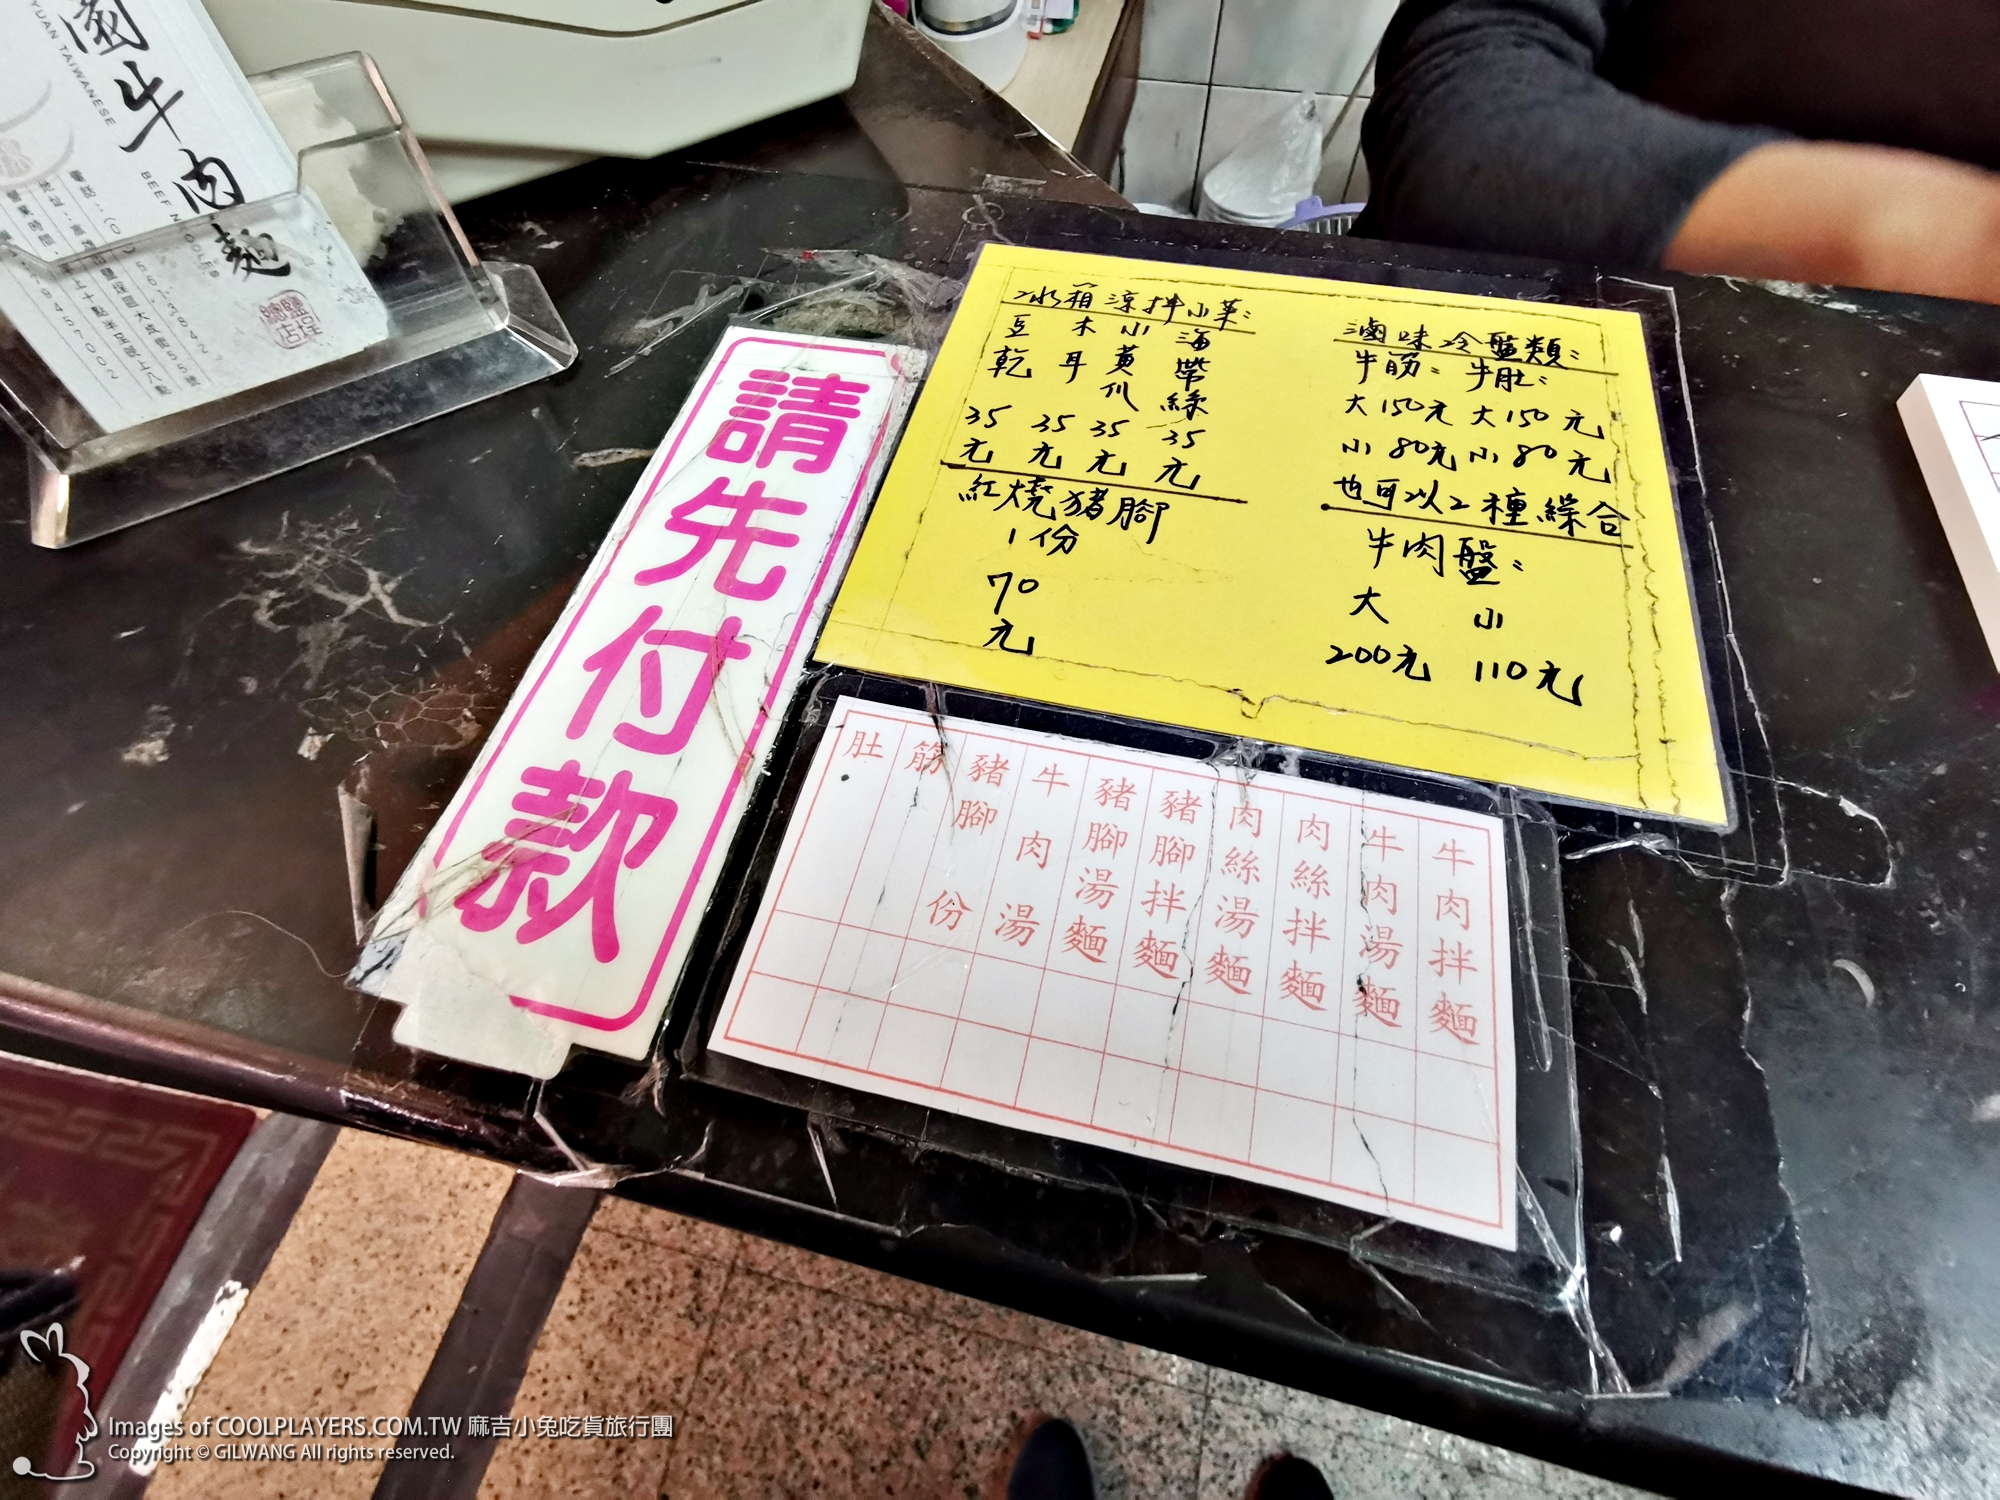 園牛肉麵
YUAN TAIWANESE
BEEF NOODLES
總店
請先付款
冰箱涼拌小菜:
豆乾 木耳 小黃瓜 海帶絲
35元 35元 35元 35元
紅燒豬腳
1份
70元
滷味冷盤類:
牛筋: 牛肚:
大150元 大150元
小80元 小80元
也可以2種綜合
牛肉盤:
大 小
200元 110元
牛肉拌麵
牛肉湯麵
肉絲拌麵
肉絲湯麵
豬腳拌麵
豬腳湯麵
牛肉湯
豬腳 份
筋
肚
Images of COOLPLAYERS.COM.TW 麻吉小兔吃貨旅行團
Copyright © GILWANG All rights reserved.